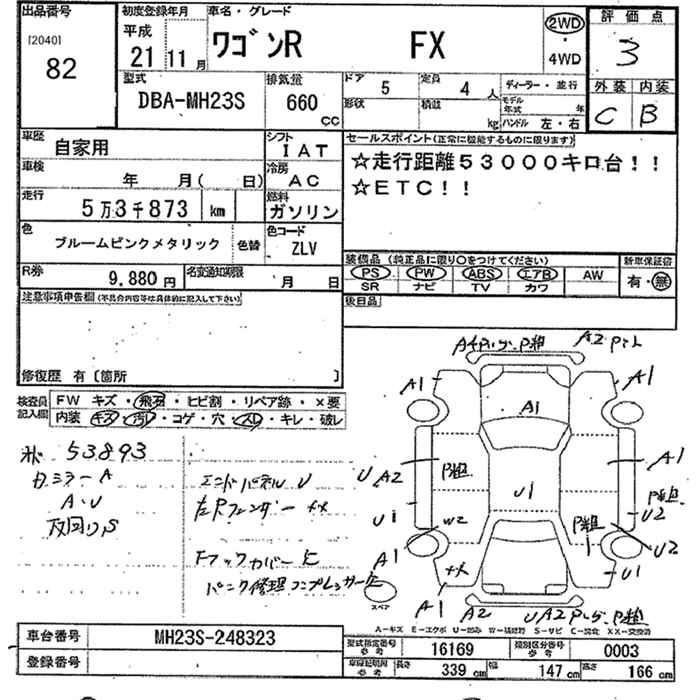 出品番号
[2040]
82
初度登録年月
平成
21 11 月
車名・グレード
ワゴンR FX
2WD
・
4WD
評価点
3
外装 内装
C B
型式
DBA-MH23S
排気量
660
CC
ドア 5
定員 4 人
形状 積載 kg
ディーラー・並行
モデル年式 年
ハンドル 左・右
車歴
自家用
シフト
IAT
車検
年 月( 日)
冷房
AC
走行
5万3千873 km
燃料
ガソリン
色
ブルームピンクメタリック 色替
色コード
ZLV
R券
9,880円
名変通知期限 月 日
セールスポイント(正常に機能するものに限ります)
☆走行距離53000キロ台!!
☆ETC!!
装備品(純正品に限り○をつけてください)
PS PW ABS エアB AW
SR ナビ TV カワ
新車保証書
有・無
後日品
注意事項申告欄(不具合内容等は具体的に記入して下さい)
修復歴 有〔箇所 〕
検査員記入欄
FW キズ・飛石・ヒビ割・リペア跡・×要
内装 キズ・汚レ・コゲ・穴・スレ・キレ・破レ
53893
ミラーA
A・U
エンドパネル U
フックカバー欠
パンク修理コンプレッサー欠
A1
A1
A1
A2
A1
U1
U1
W2
U2
U2
U1
A1
A1
A2
スペア
A-キズ E-エクボ U-凹み W-補修跡 S-サビ C-腐食 XX-交換済
車台番号
MH23S-248323
登録番号
型式指定番号 参考
16169
類別区分番号 参考
0003
車庫証明用 参考
長さ 339 cm
幅 147 cm
高さ 166 cm